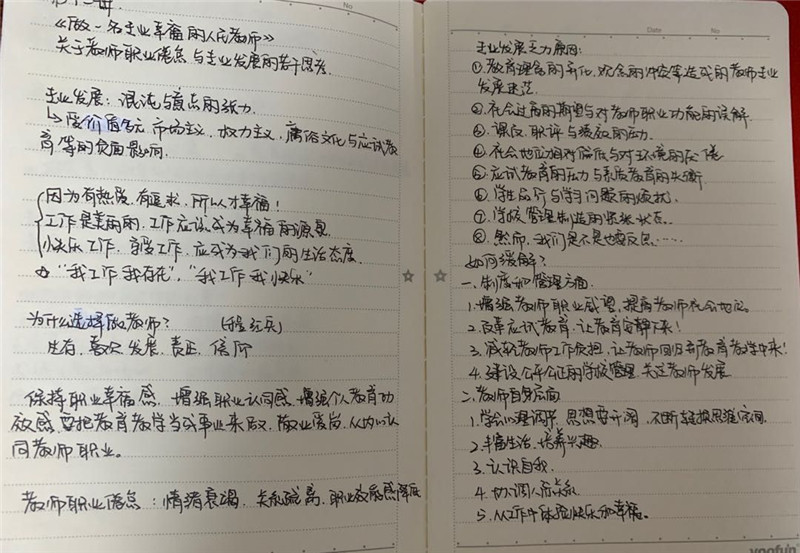 《做一名专业幸福的人民教师》
关于教师职业倦怠与专业发展的若干思考.
专业发展：混沌与意志的张力.
↳受价值多元 市场主义. 权力主义. 庸俗文化与应试教
育等的负面影响.
因为有热爱,有追求,所以才幸福!
工作是美丽的,工作应该成为幸福的源泉
快乐工作,享受工作,应成为我们的生活态度.
"我工作我存在","我工作我快乐"
为什么选择做教师?
生存,喜欢,发展,责任,信仰
保持职业幸福感. 增强职业认同感,增强个人教育功
效感.要把教育教学当成事业来做,敬业爱岗,从内心认
同教师职业。
教师职业倦怠：情绪衰竭. 关系疏离.职业效能感降低
Date
No
专业发展乏力原因:
①.教育理念的异化,观念的冲突等造成的教师专业
发展迷茫.
②.社会过高的期望与对教师职业功能的误解.
③.课改,职评与绩效的压力.
④.社会地位相对偏低与对环境的
⑤.应试教育的压力与素质教育的失衡
⑥.学生品行与学习问题的烦扰.
⑦.学校管理制造的紧张状态.
⑧.然而,我们是不是也要反思……
如何缓解?
一.制度和管理方面.
1.增强教师职业威望,提高教师社会地位.
2.改革应试教育,让教育安静下来!
3.减轻教师工作负担,让教师回归到教育教学中来!
4.建设公平公正的学校管理,关注教师发展
二.教师自身方面
1.学会心理调节,思想要开阔,不断转换思维空间.
2.丰富生活,培养兴趣.
3.认识自我.
4.协调人际关系
5.从工作中体验快乐和幸福。
yoofun